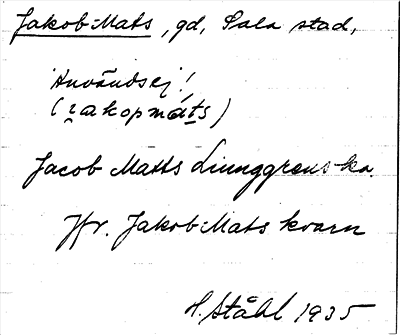 Jakob-Mats, gd, Sala stad,
Användsej!
(ɩakopmáts)
Jacob Matts Liunggrens ka.
Jfr. Jakob-Mats kvarn
H. Ståhl 1935